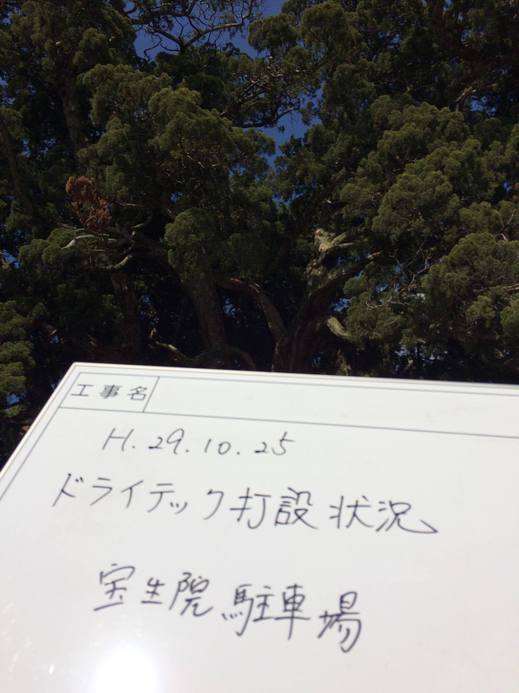 工事名
H.29.10.25
ドライテック打設状況
宝生院駐車場